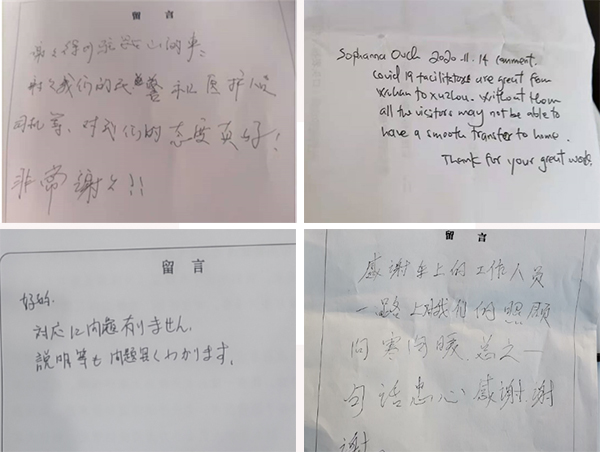 留 言
我们的民警和医护人员
司机等，对我们的态度真好！
非常谢谢!!
Sophanna Ouch 2020.11.14 comment.
Covid 19 facilitators are great from
wuhan to xuzhou. Without them
all the visitors may not be able to
have a smooth transfer to home.
Thank for your great work.
留 言
好的.
対応に問題有りません.
説明等も問題無くわかります.
留 言
感谢车上的工作人员
一路上对我们的照顾
问寒问暖.总之一
句话忠心感谢.谢
谢.